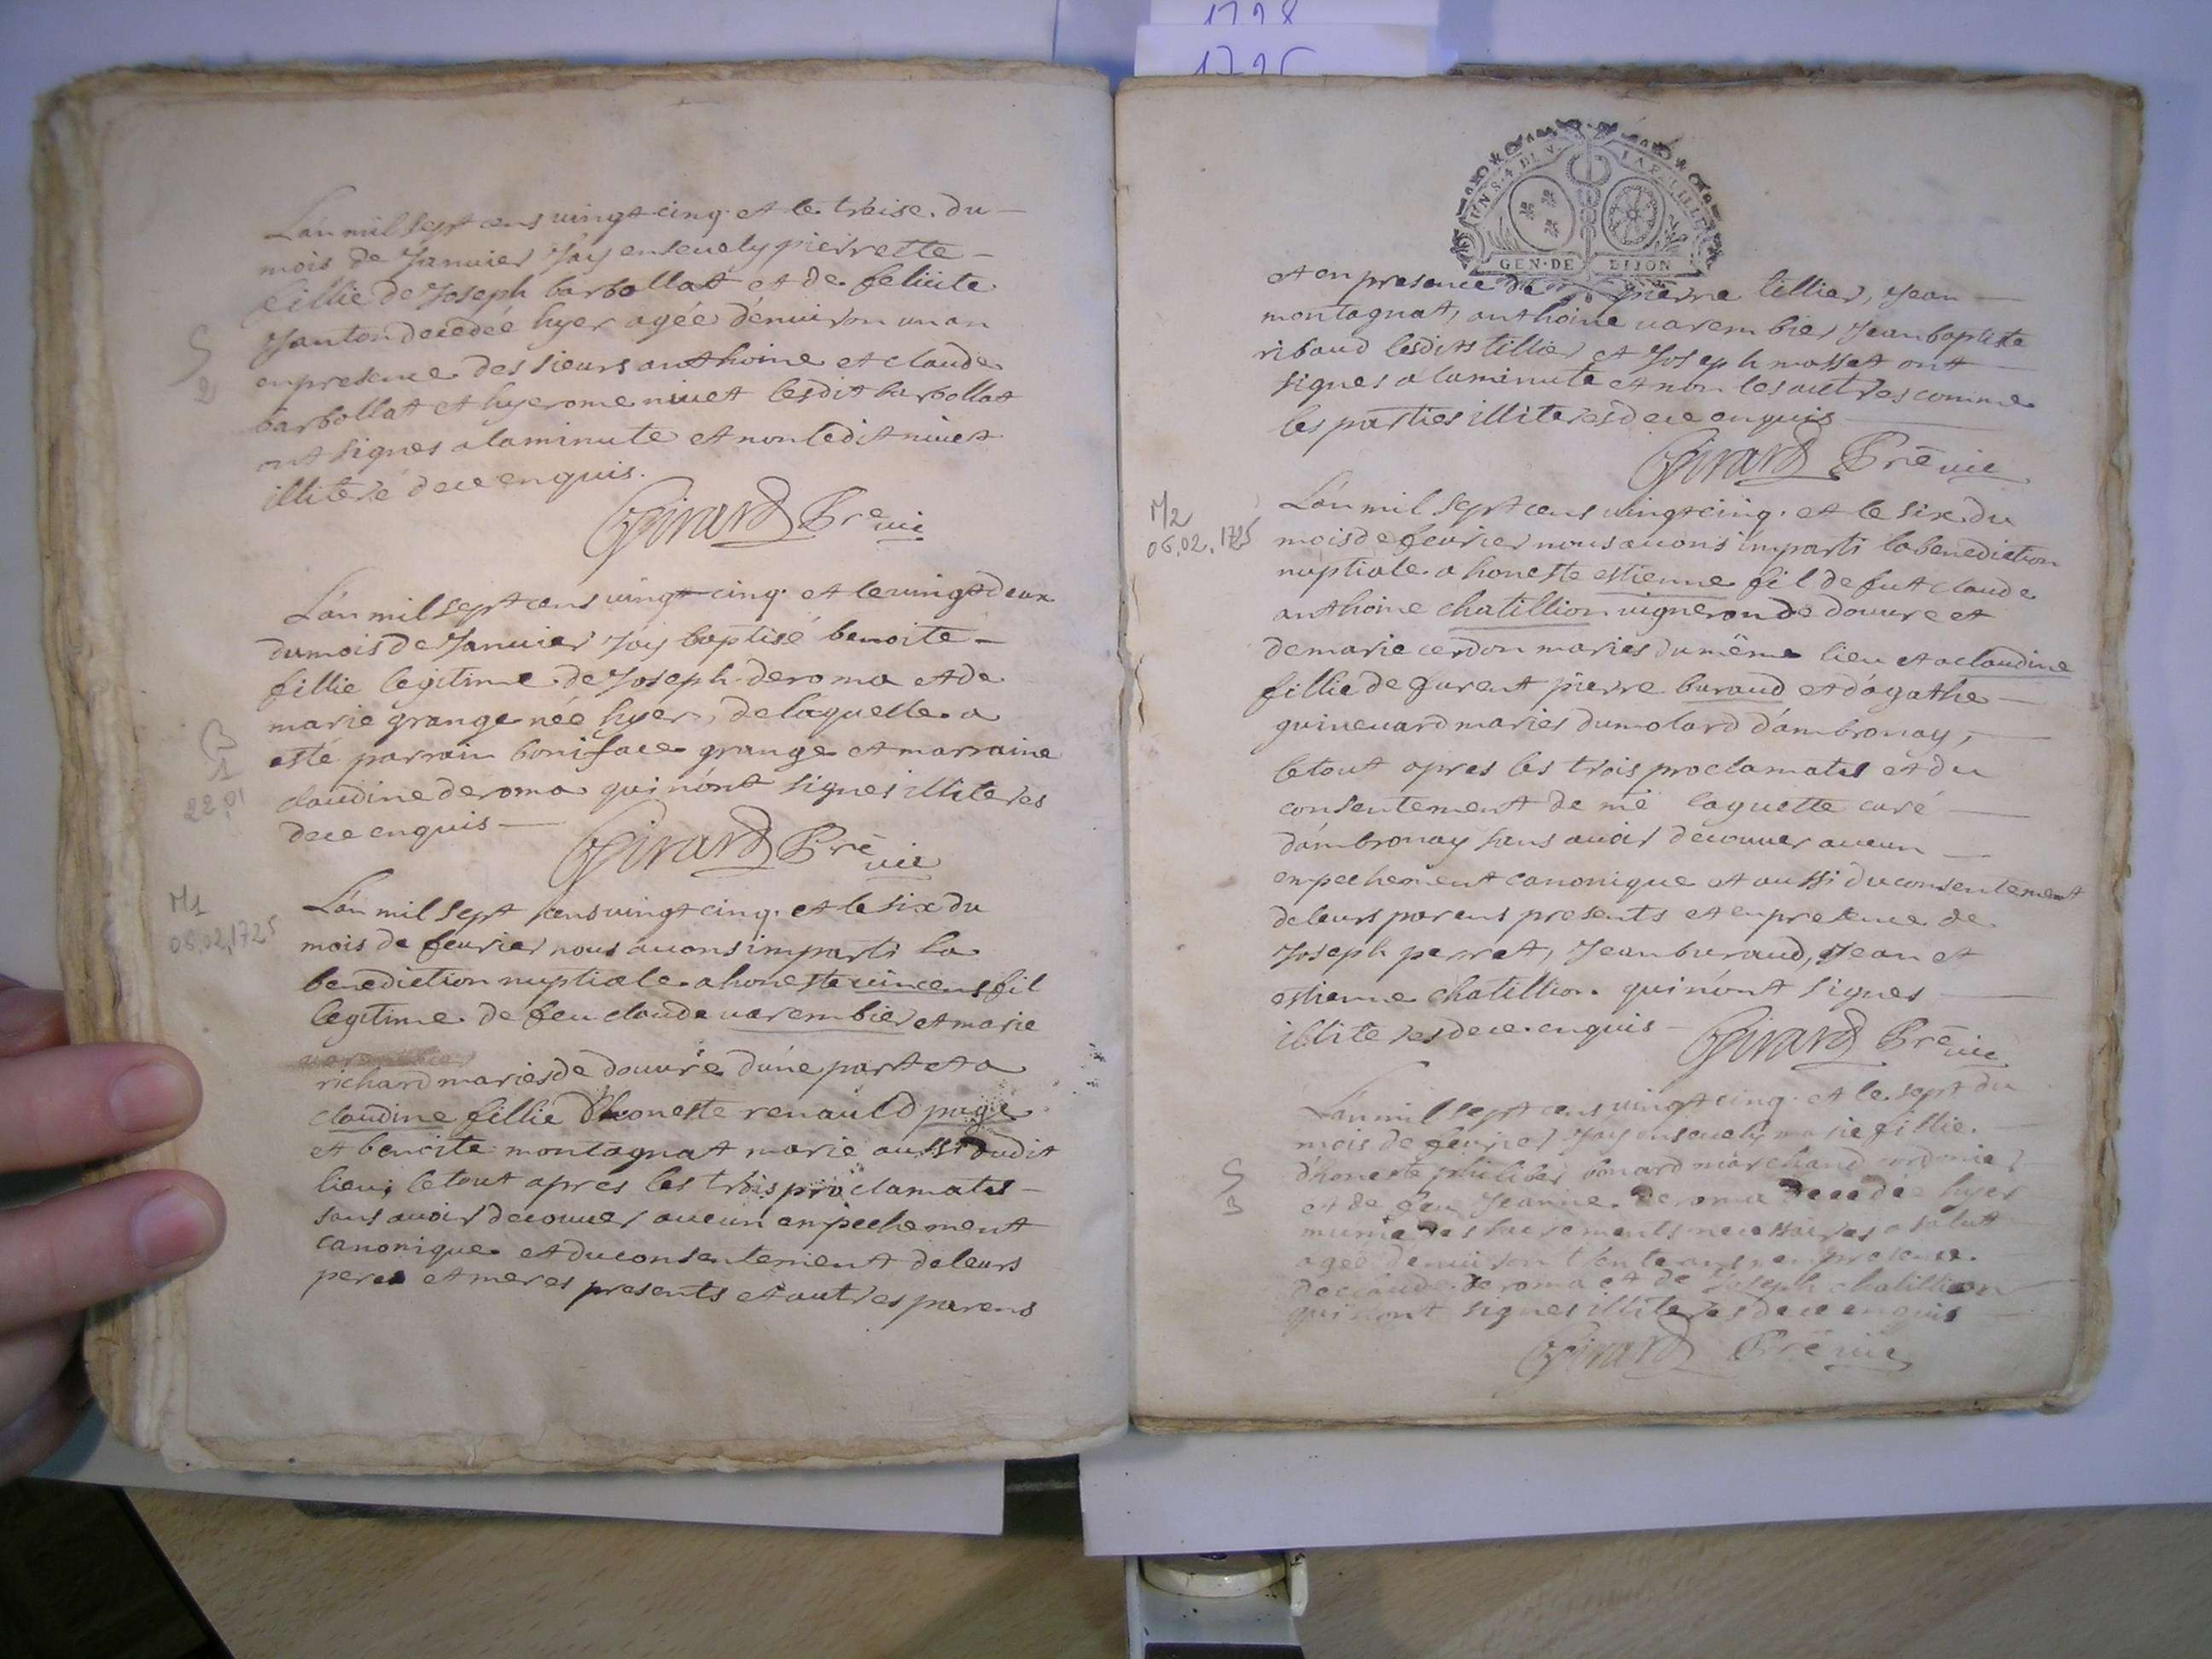 1728
1725
L'an mil sept cens vingt cinq. et le treise. du
mois de Janvier J'ay ensevely pierrette
fillie de Joseph barbollat et de felicite
Janton decedeé hyer agée d'environ un an
en presence des sieurs anthoine et claude
barbollat et hyerome nivet lesdit barbollat
ont signes a la minute et non ledit nivet
illiteré de ce enquis.
Girard Pre vic
S
2
L'an mil sept cens vingt cinq. et le vingt deux
du mois de Janvier J'ay baptisé benoite
fillie legitime de Joseph deroma et de
marie grange née hyer, de laquelle a
esté parrain boniface grange et marraine
claudine deroma qui n'ont signes illiteres
de ce enquis
Girard Pre vic
B
1
22.01
M1
06.02.1725
L'an mil sept cens vingt cinq. et le six du
mois de fevrier nous avons imparti la
benediction nuptiale a honeste vincens fil
legitime de feu claude varembier et marie
richard mariés de douvre d'une part et a
claudine fillie d'honeste renauld page
et benoite montagnat marié aussi dudit
lieu, le tout apres les trois proclamates
sans avoir decouver aucun empechement
canonique et du consentement de leurs
peres et meres presents et autres parens
UN S. 4. D.
LA F. UILLE
GEN. DE DIJON
et en presence de pierre tillier, Jean
montagnat, anthoine varembier Jean baptiste
ribaud lesdits tillier et Joseph masset ont
signes a la minute et non les autres comme
les parties illiteres de ce enquis
Girard Pre vic
M2
06.02.1725
L'an mil sept cens vingt cinq. et le six du
mois de fevrier nous avons imparti la benediction
nuptiale a honeste estienne fil de fut claude
anthoine chatillion vigneron de douvre et
de marie cerdon mariés du même lieu et a claudine
fillie de furent pierre buraud et d'agathe
guinevard mariés du molard d'ambronay,
le tout apres les trois proclamates et du
consentement de me laguette curé
d'ambronay sans avoir decouver aucun
empechement canonique et aussi du consentement
de leurs parens presents et en presence de
Joseph perret, Jean buraud, Jean et
estienne chatillion qui n'ont signes
illiteres de ce enquis
Girard Pre vic
S
3
L'an mil sept cens vingt cinq. et le sept du
mois de fevrier J'ay ensevely marie fillie
d'honeste philiber bonard marchand cordonier
et de feu Jeanne deroma decedeé hyer
munie des sacrements necessaires a salut
agée d'environ trente ans en presence
de claude deroma et de Joseph chatillion
qui n'ont signes illiteres de ce enquis
Girard Pre vic